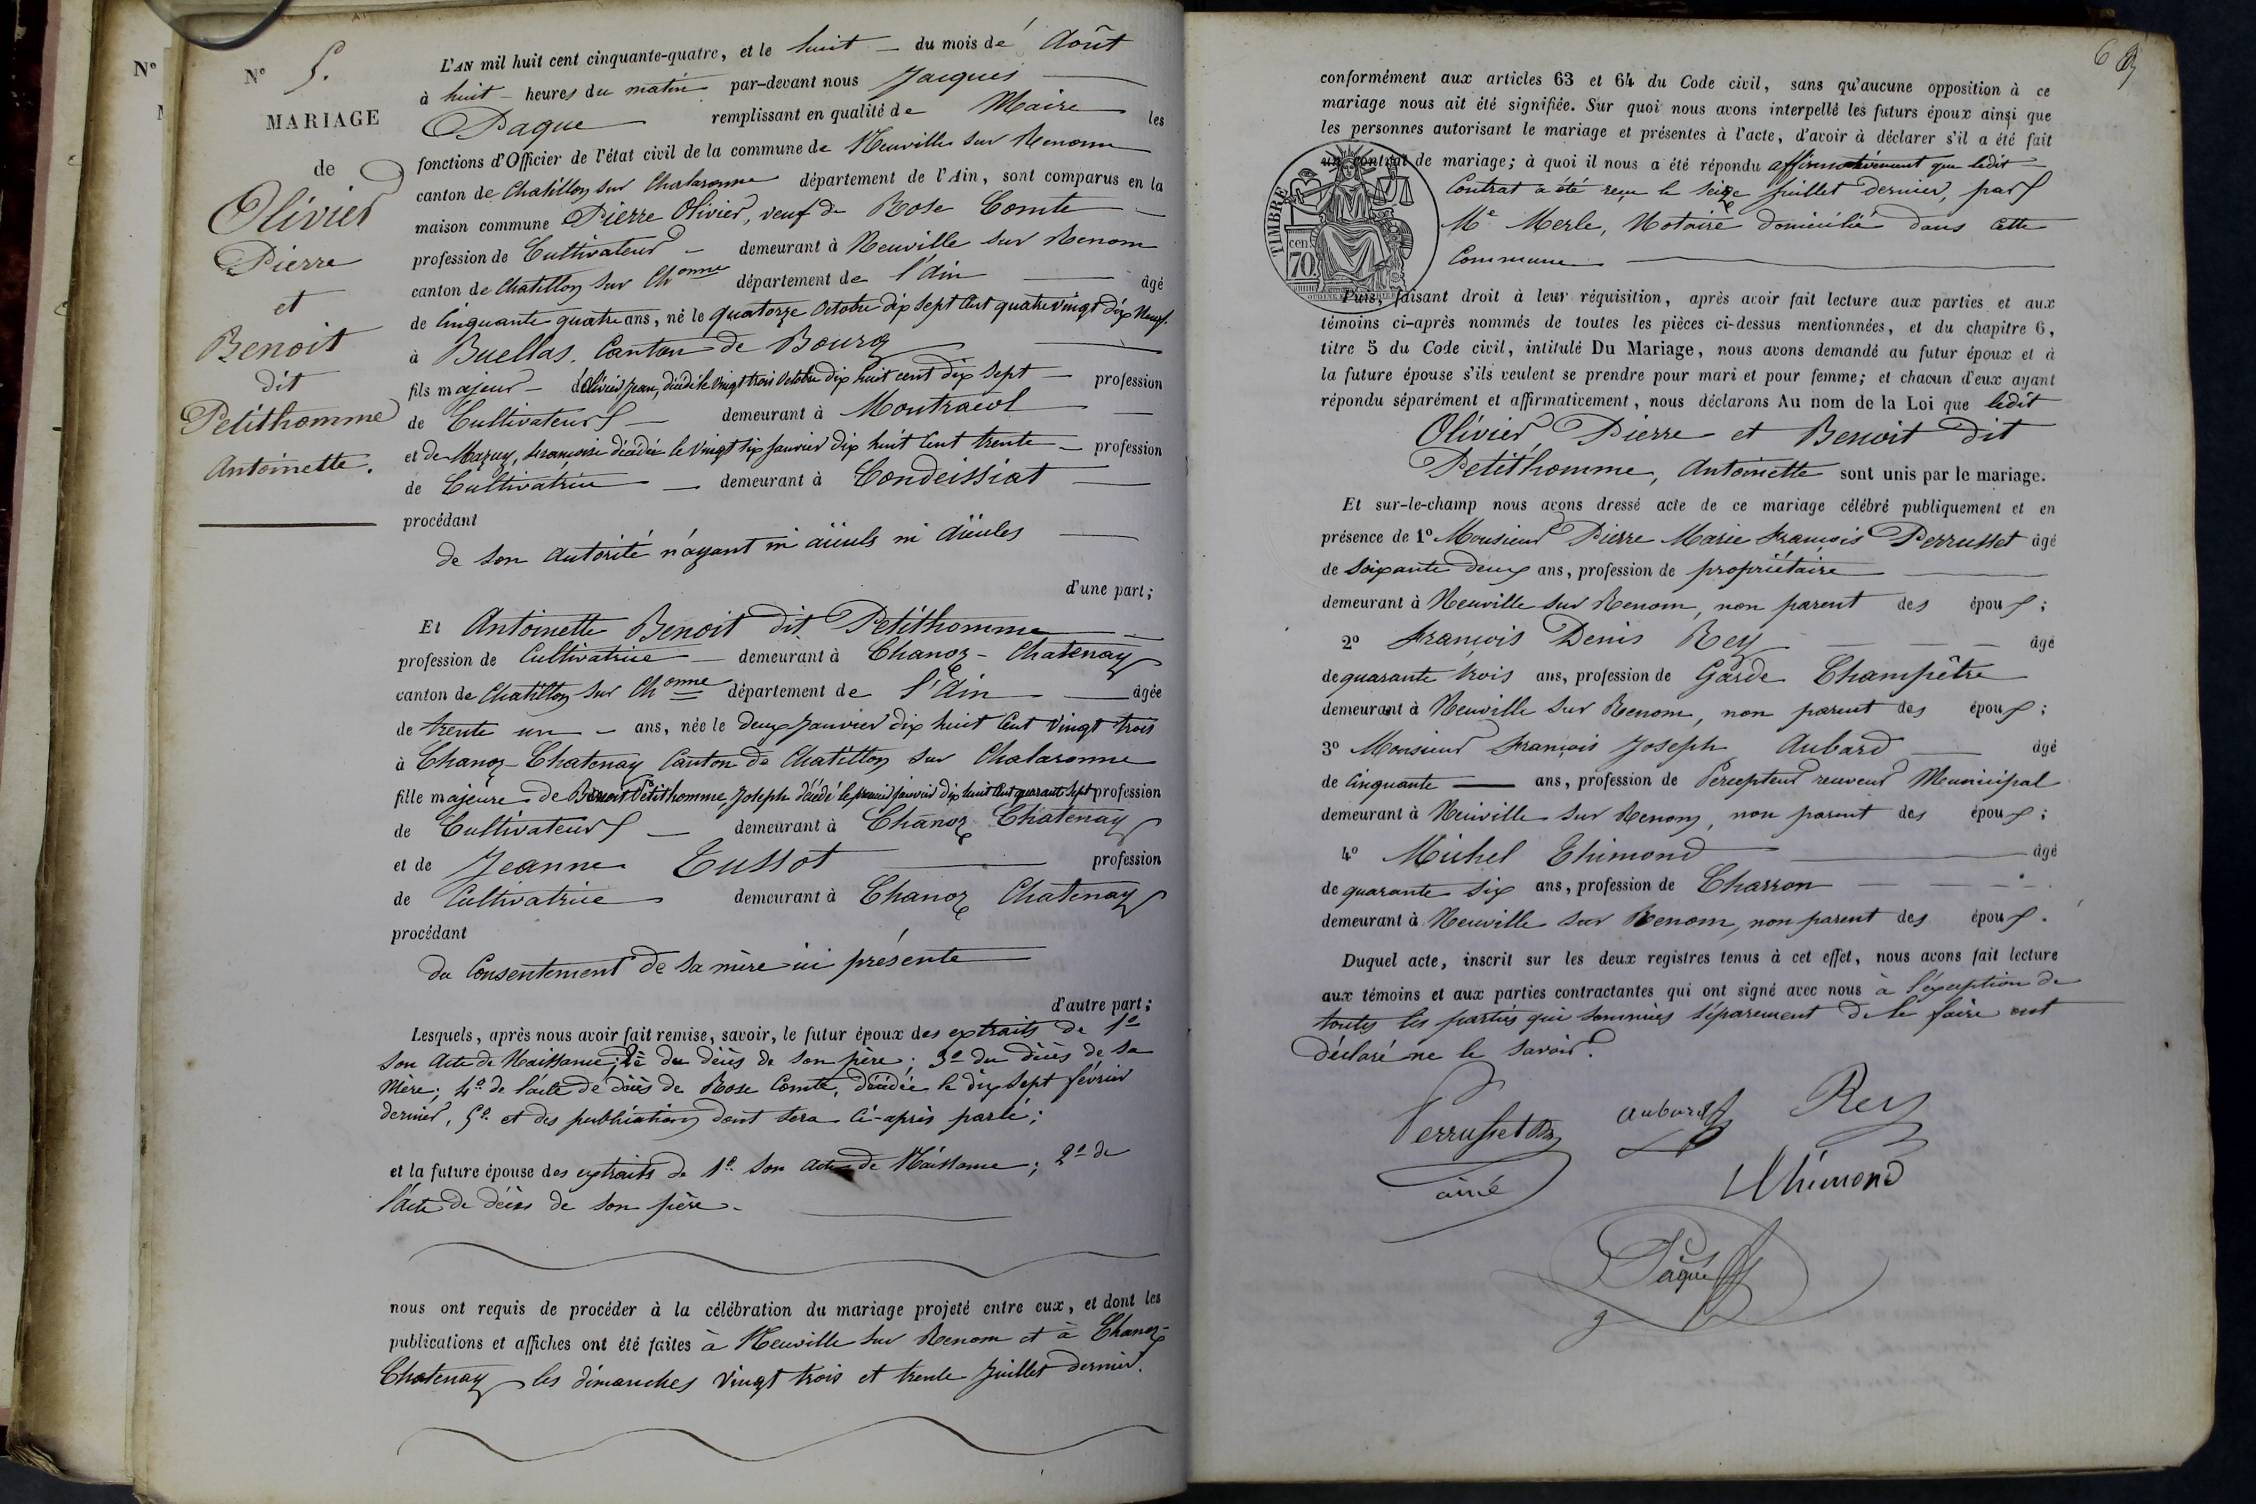 Nº
Nº 5.
MARIAGE
de
Olivier
Pierre
et
Benoit
dit
Petithomme
Antoinette.
L'AN mil huit cent cinquante-quatre, et le huit du mois de Août
à huit heures du matin par-devant nous Jacques
Paque remplissant en qualité de Maire les
fonctions d'Officier de l'état civil de la commune de Neuville sur Renom
canton de Chatillon sur Chalaronne département de l'Ain, sont comparus en la
maison commune Pierre Olivier, veuf de Rose Comte
profession de Cultivateur demeurant à Neuville sur Renom
canton de Chatillon sur Chonne département de l'Ain âgé
de Cinquante quatre ans, né le quatorze Octobre dix sept Cent quatre vingt dix Neuf.
à Buellas, Canton de Bourg
fils majeur d'Olivier Jean, décédé le vingt trois Octobre dix huit cent dix sept profession
de Cultivateur demeurant à Montracol
et de Mazuy, françoise décédée le vingt six Janvier dix huit Cent trente profession
de Cultivatrice demeurant à Condeissiat
procédant
de son autorité n'ayant ni aïeuls ni aïeules
d'une part;
Et Antoinette Benoit dit Petithomme
profession de Cultivatrice demeurant à Chanoz-Chatenay
canton de Chatillon sur Chonne département de l'Ain âgée
de trente un ans, née le deux Janvier dix huit Cent Vingt trois
à Chanoz-Chatenay Canton de Chatillon sur Chalaronne
fille majeure de Benoit Petithomme, Joseph décédé le premier Janvier dix huit Cent quarante Sept profession
de Cultivateur demeurant à Chanoz Chatenay
et de Jeanne Tussot profession
de Cultivatrice demeurant à Chanoz Chatenay
procédant
du Consentement de sa mère ici présente
d'autre part;
Lesquels, après nous avoir fait remise, savoir, le futur époux des extraits de 1º
son acte de Naissance; 2º du décès de son père; 3º du décès de sa
Mère; 4º de l'acte de décès de Rose Comte, décédée le dix sept février
dernier, 5º et des publications dont sera ci-après parlé;
et la future épouse des extraits de 1º son acte de Naissance; 2º de
l'acte de décès de son père.
nous ont requis de procéder à la célébration du mariage projeté entre eux, et dont les
publications et affiches ont été faites à Neuville sur Renom et à Chanoz-
Chatenay les dimanches vingt trois et trente Juillet dernier.
conformément aux articles 63 et 64 du Code civil, sans qu'aucune opposition à ce
mariage nous ait été signifiée. Sur quoi nous avons interpellé les futurs époux ainsi que
les personnes autorisant le mariage et présentes à l'acte, d'avoir à déclarer s'il a été fait
un contrat de mariage; à quoi il nous a été répondu affirmativement que ledit
Contrat a été reçu le seize Juillet dernier, par
Me Merle, Notaire domicilié dans cette
Commune
TIMBRE
cen.
70
Puis, faisant droit à leur réquisition, après avoir fait lecture aux parties et aux
témoins ci-après nommés de toutes les pièces ci-dessus mentionnées, et du chapitre 6,
titre 5 du Code civil, intitulé Du Mariage, nous avons demandé au futur époux et à
la future épouse s'ils veulent se prendre pour mari et pour femme; et chacun d'eux ayant
répondu séparément et affirmativement, nous déclarons Au nom de la Loi que ledit
Olivier, Pierre et Benoit dit
Petithomme, Antoinette sont unis par le mariage.
Et sur-le-champ nous avons dressé acte de ce mariage célébré publiquement et en
présence de 1º Monsieur Pierre Marie François Perrusset âgé
de Soixante deux ans, profession de propriétaire
demeurant à Neuville sur Renom, non parent des époux;
2º François Denis Rey âgé
de quarante trois ans, profession de Garde Champêtre
demeurant à Neuville sur Renom, non parent des époux;
3º Monsieur François Joseph Aubard âgé
de Cinquante ans, profession de Percepteur receveur Municipal
demeurant à Neuville sur Renom, non parent des époux;
4º Michel Thimond âgé
de quarante six ans, profession de Charron
demeurant à Neuville sur Renom, non parent des époux.
Duquel acte, inscrit sur les deux registres tenus à cet effet, nous avons fait lecture
aux témoins et aux parties contractantes qui ont signé avec nous à l'exception de
toutes les parties qui sommées séparement de le faire ont
déclaré ne le savoir.
Perrusset
aîné
aubard
Rey
Thimond
Pâque